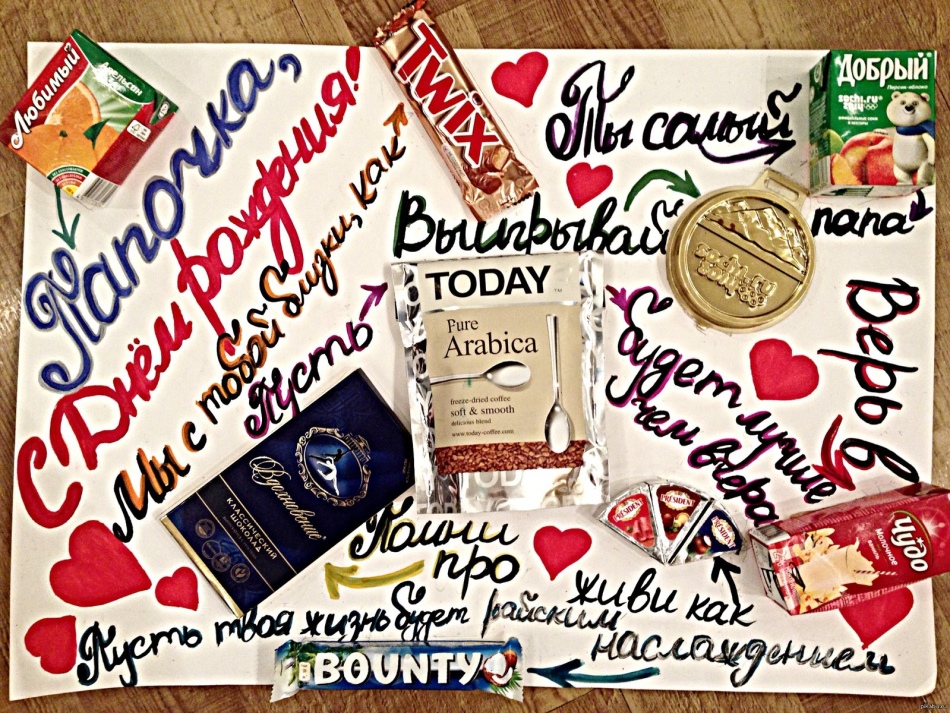 Любимый
Апельсин
Папочка,
С Днём рождения!
Мы с тобой близки, как
TWIX
Ты самый
Добрый
Персик-яблоко
sochi.ru
2014
папа
Выигрывай
Пусть
TODAY
Pure
Arabica
freeze-dried coffee
soft & smooth
delicious blend
www.today-coffee.com
будет лучше
чем вчера
Верь в
Чудо
Молочное
Помни
про
Вдохновение
КЛАССИЧЕСКИЙ
ШОКОЛАД
живи как
PRESIDENT
PRESIDENT
PRESIDENT
Пусть твоя жизнь будет райским
наслаждением
BOUNTY